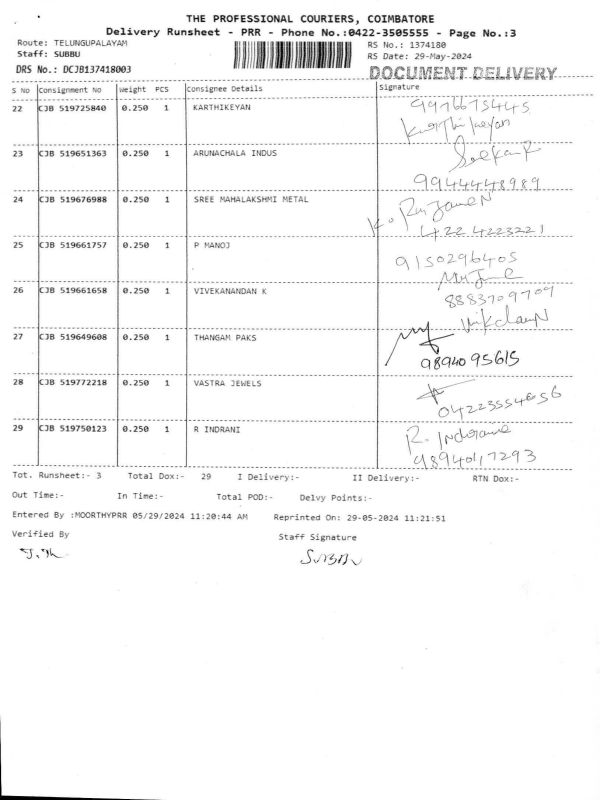 THE PROFESSIONAL COURIERS, COIMBATORE
Delivery Runsheet - PRR - Phone No.:0422-3505555 - Page No.:3
Route: TELUNGUPALAYAM
RS No.: 1374180
Staff: SUBBU
RS Date: 29-May-2024
DRS No.: DCJB137418003
DOCUMENT DELIVERY
S No Consignment No Weight PCS Consignee Details Signature
22 CJB 519725840 0.250 1 KARTHIKEYAN
9976675445
Karthikeyan
23 CJB 519651363 0.250 1 ARUNACHALA INDUS
9944448989
24 CJB 519676988 0.250 1 SREE MAHALAKSHMI METAL
422 4223221
25 CJB 519661757 0.250 1 P MANOJ
9150296405
26 CJB 519661658 0.250 1 VIVEKANANDAN K
8883709709
27 CJB 519649608 0.250 1 THANGAM PAKS
9894095615
28 CJB 519772218 0.250 1 VASTRA JEWELS
04223554656
29 CJB 519750123 0.250 1 R INDRANI
R. Indrani
9894017293
Tot. Runsheet:- 3 Total Dox:- 29 I Delivery:- II Delivery:- RTN Dox:-
Out Time:- In Time:- Total POD:- Delvy Points:-
Entered By :MOORTHYPRR 05/29/2024 11:20:44 AM Reprinted On: 29-05-2024 11:21:51
Verified By Staff Signature
SUBBU